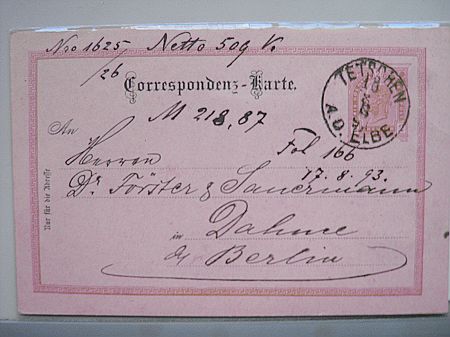 Nro 1625 Netto 509 V.
/26
Correspondenz-Karte.
TETSCHEN
A.D. ELBE
M 218,87
An
Herren
Fol 166
17.8.93.
Dr Förster & Sauermann
in Dahme
Berlin
Nur für die Adresse